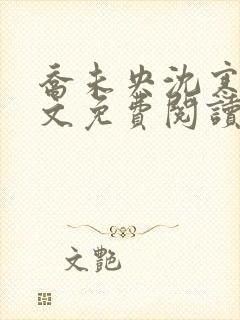 喬未央沈寒
文免費閱讀
文艷